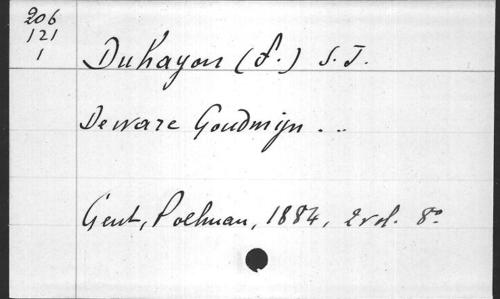 206
121
1
Duhayon (F.) S. J.
De ware Goudmijn . ..
Gent, Poelman, 1884, 2 vol. 8º